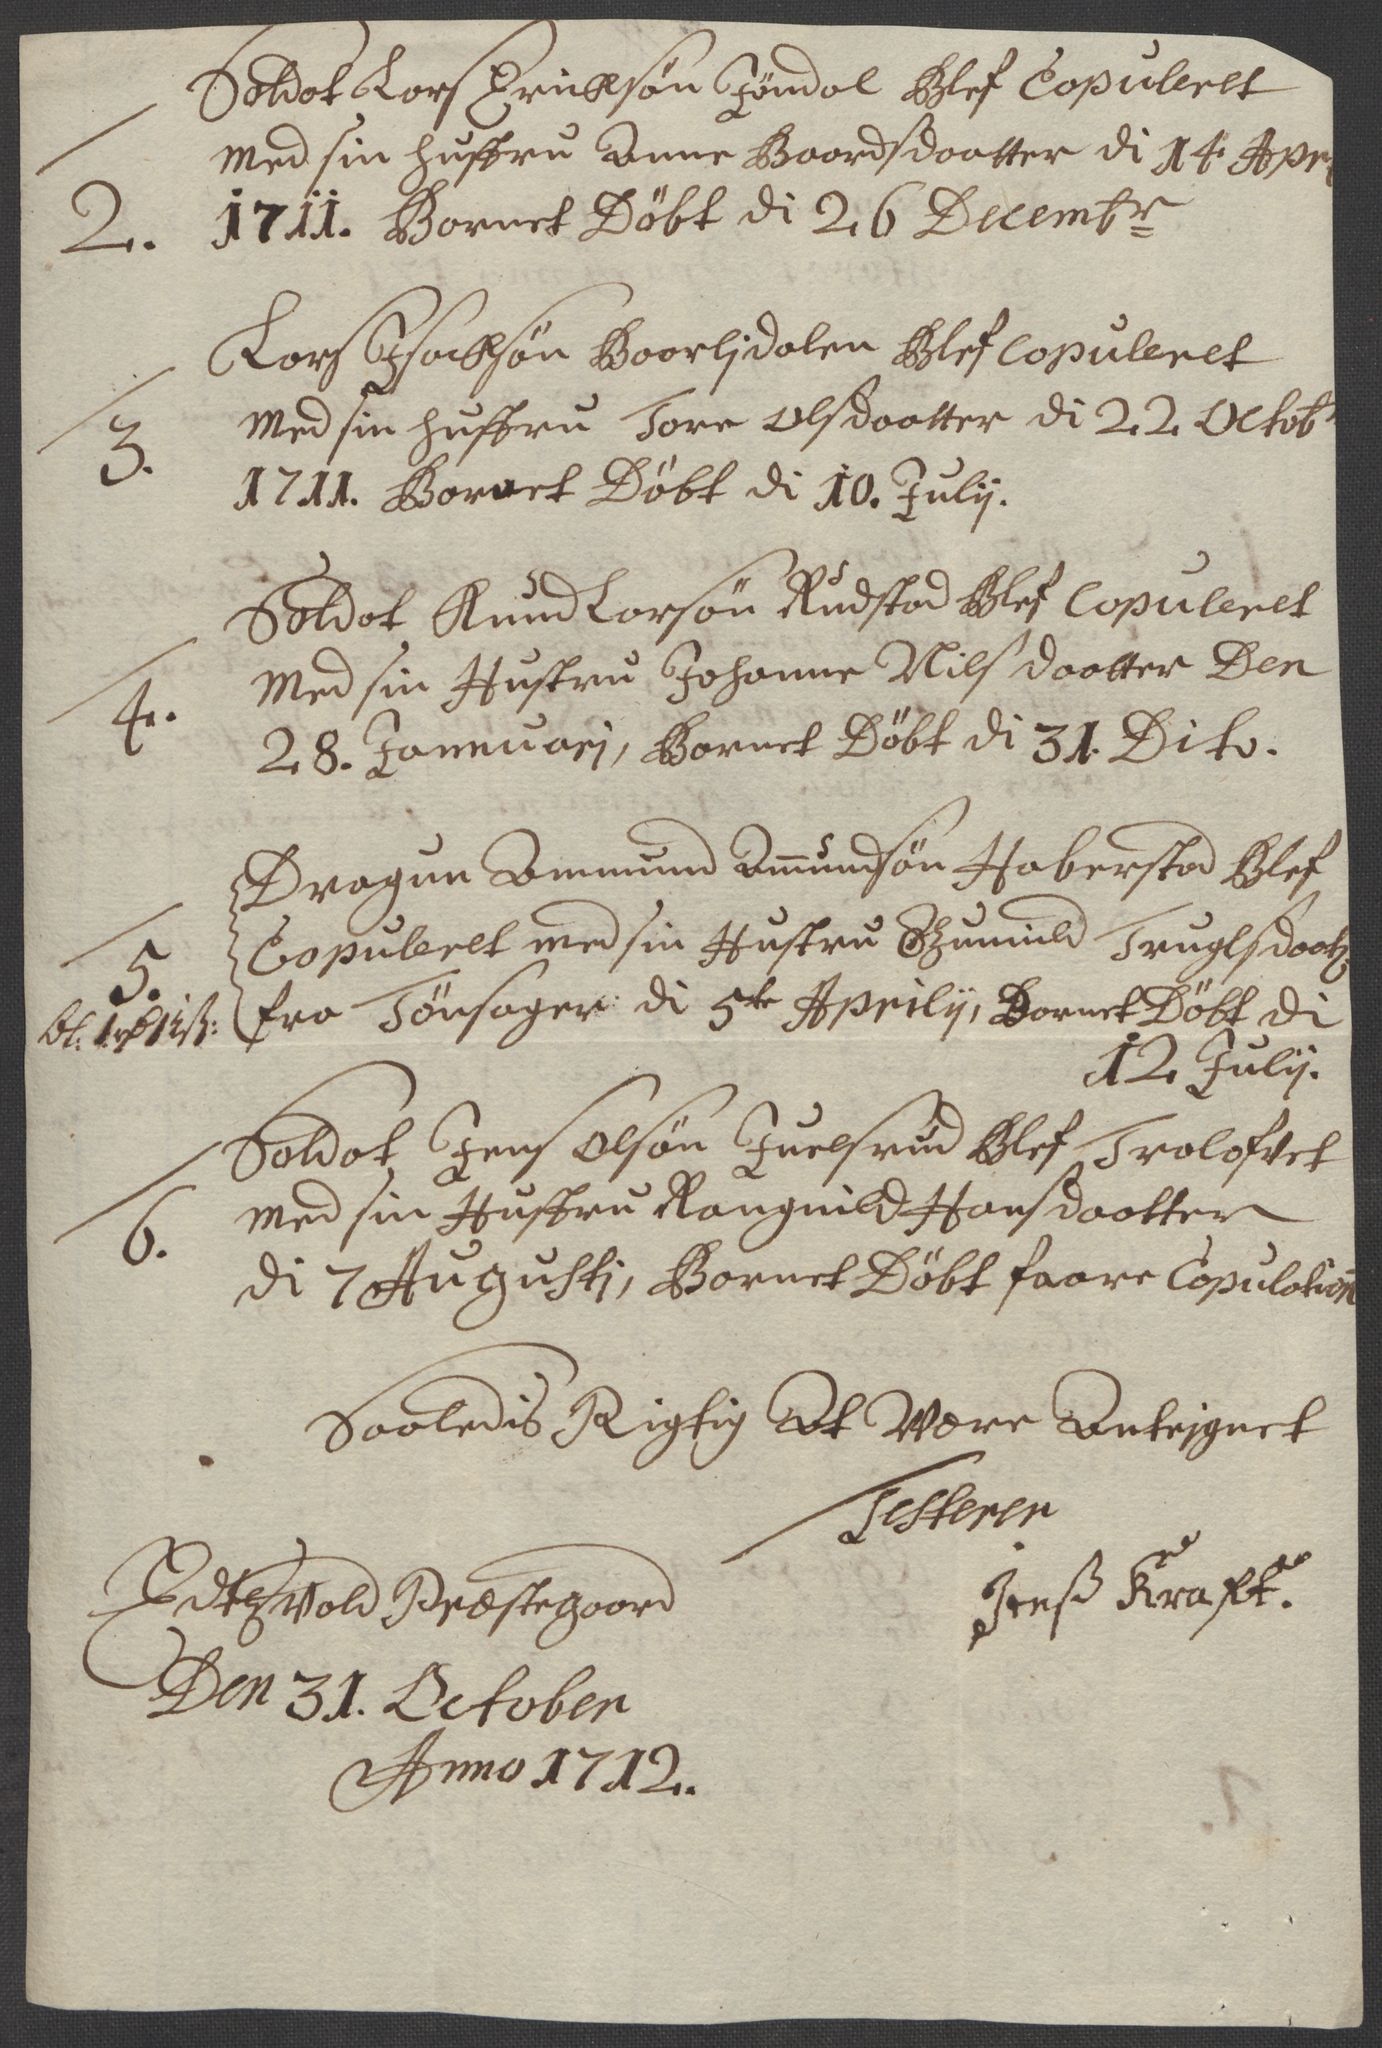 Soldat Lars Ericksøn Jøndal Blef Copuleret
2. med sin hustru Anne Baardsdaatter di 14 Apri
1711. Barnet Döbt di 26 Decembr
Lars Isacksøn Baarljdalen Blef Copuleret
3. med sin hustru Tore Olsdaatter di 22 Octobr
1711. Barnet Döbt di 10. Julij.
Soldat Knud Larsøn Rudstad Blef Copuleret
4. med sin Hustru Johanne Nilsdaatter Den
28. Januarj, Barnet Döbt di 31. Dito.
Dragun Ammund Amundsøn Haberstad Blef
5. Copuleret med sin Hustru Gunnild Truglsdaatt
fra Tønsager di 5te Aprilij, Barnet Döbt di
12 Julij.
Soldat Jens Olsøn Juelsrud Blef Trolofvet
6. med sin Hustru Rangnild Hansdaatter
di 7 Augustj, Barnet Döbt faare Copulation
Saaledis Rigtig At Være Antejgnet
Testerer
Jenß Kraft.
Edtzvold Præstegaard
Den 31. October
Anno 1712.